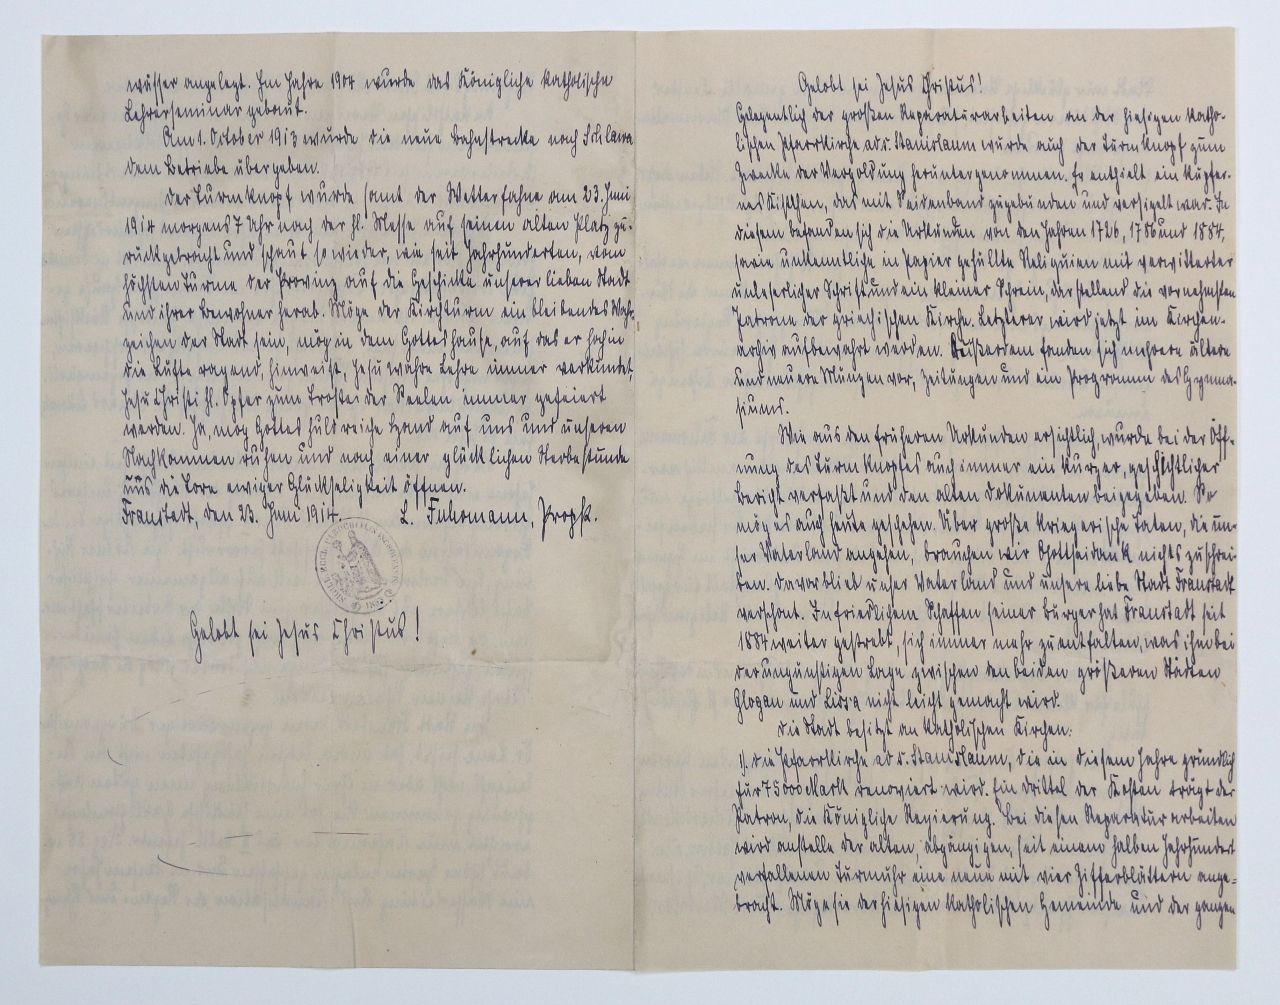 wässer angelegt. Im Jahre 1904 wurde das Königliche katholische
Lehrerseminar gebaut.
Am 1. October 1913 wurde die neue Bahnstrecke nach Schlawa
dem Betriebe übergeben.
Der Turmknopf wurde samt der Wetterfahne am 23. Juni
1914 morgens 7 Uhr nach der hl. Messe auf seinen alten Platz zu-
rückgebracht und schaut so wieder, wie seit Jahrhunderten, vom
höchsten Turme der Provinz auf die Geschicke unserer lieben Stadt
und ihrer Bewohner herab. Möge der Kirchturm ein bleibendes Wahr-
zeichen der Stadt sein, mög in dem Gotteshause, auf das er hoch in
die Lüfte ragend, hinweist, Jesu wahre Lehre immer verkündet,
Jesu Christi hl. Opfer zum Troste der Seelen immer gefeiert
werden. Ja, mög Gottes huldreiche Hand auf uns und unseren
Nachkommen ruhen und nach einer glücklichen Sterbestunde
uns die Tore ewiger Glückseligkeit öffnen.
Fraustadt, den 23. Juni 1914. L. Fuhrmann, Propst.
Gelobt sei Jesus Christus!
Gelobt sei Jesus Christus!
Gelegentlich der großen Reparaturarbeiten an der hiesigen katho-
lischen Pfarrkirche ad s. Stanislaum wurde auch der Turmknopf zum
Zwecke der Vergoldung heruntergenommen. Er enthielt ein kupfer-
nes Kistchen, das mit Seidenband zugebunden und versiegelt war. In
diesem befanden sich die Urkunden von den Jahren 1726, 1786 und 1884,
sowie unkenntliche in Papier gehüllte Reliquien mit verwitterter
unleserlicher Schrift und ein kleiner Schrein, darstellend die vornehmsten
Patrone der griechischen Kirche. Letzterer wird jetzt im Kirchen-
archiv aufbewahrt werden. Außerdem fanden sich mehrere ältere
und neuere Münzen vor, Zeitungen und ein Programm des Gymna-
siums.
Wie aus den früheren Urkunden ersichtlich, wurde bei der Öff-
nung des Turmknopfes auch immer ein kurzer, geschichtlicher
Bericht verfaßt und den alten Dokumenten beigegeben. So
mög es auch heute geschehen. Über große kriegerische Taten, die un-
ser Vaterland angehen, brauchen wir Gott sei dank nichts zu schrei-
ben. Davor blieb unser Vaterland und unsere liebe Stadt Fraustadt
verschont. In friedlichem Schaffen seiner Bürger hat Fraustadt seit
1884 weiter gestrebt, sich immer mehr zu entfalten, was ihm bei
der ungünstigen Lage zwischen den beiden größeren Städten
Glogau und Lissa nicht leicht gemacht wird.
Die Stadt besitzt an katholischen Kirchen:
1) die Pfarrkirche ad s. Stanislaum, die in diesem Jahre gründlich
für 75000 Mark renoviert wird. Ein Drittel der Kosten trägt der
Patron, die Königliche Regierung. Bei diesen Reparaturarbeiten
wird anstelle der alten, abgängigen, seit einem halben Jahrhundert
verfallenen Turmuhr eine neue mit vier Zifferblättern ange-
bracht. Möge sie der hiesigen katholischen Gemeinde und der ganzen